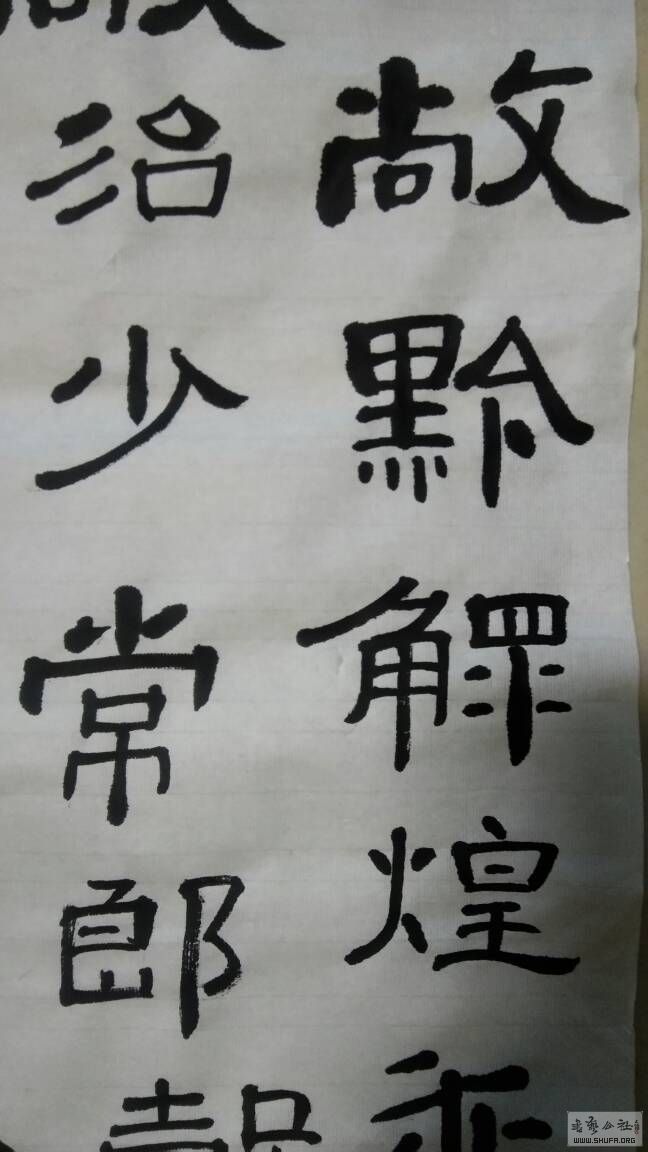 敞黔煌
治少常郎
書藝公社
WWW.SHUFA.ORG